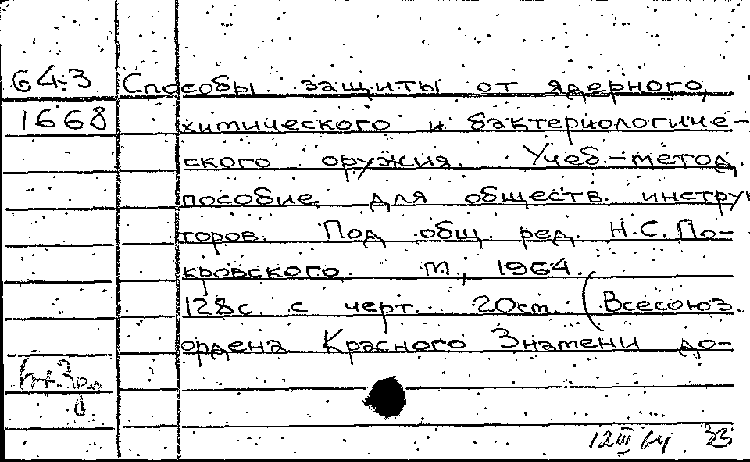 64-3 Способы защиты от ядерного,
1668 химического и бактериологиче-
ского оружия. Учеб-метод.
пособие для обществ. инструк
торов. Под общ. ред. Н.С. По-
кровского. М., 1964.
128с. с черт. 20см. (Всесоюз.
ордена Красного Знамени до-
12 III 64 33